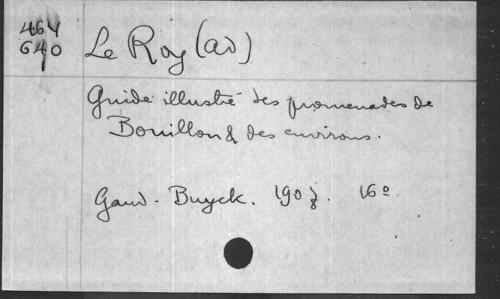 464
640
Le Roy (ad)
Guide illustré des promenades de
Bouillon & des environs.
Gand - Buyck. 1907. 16º.